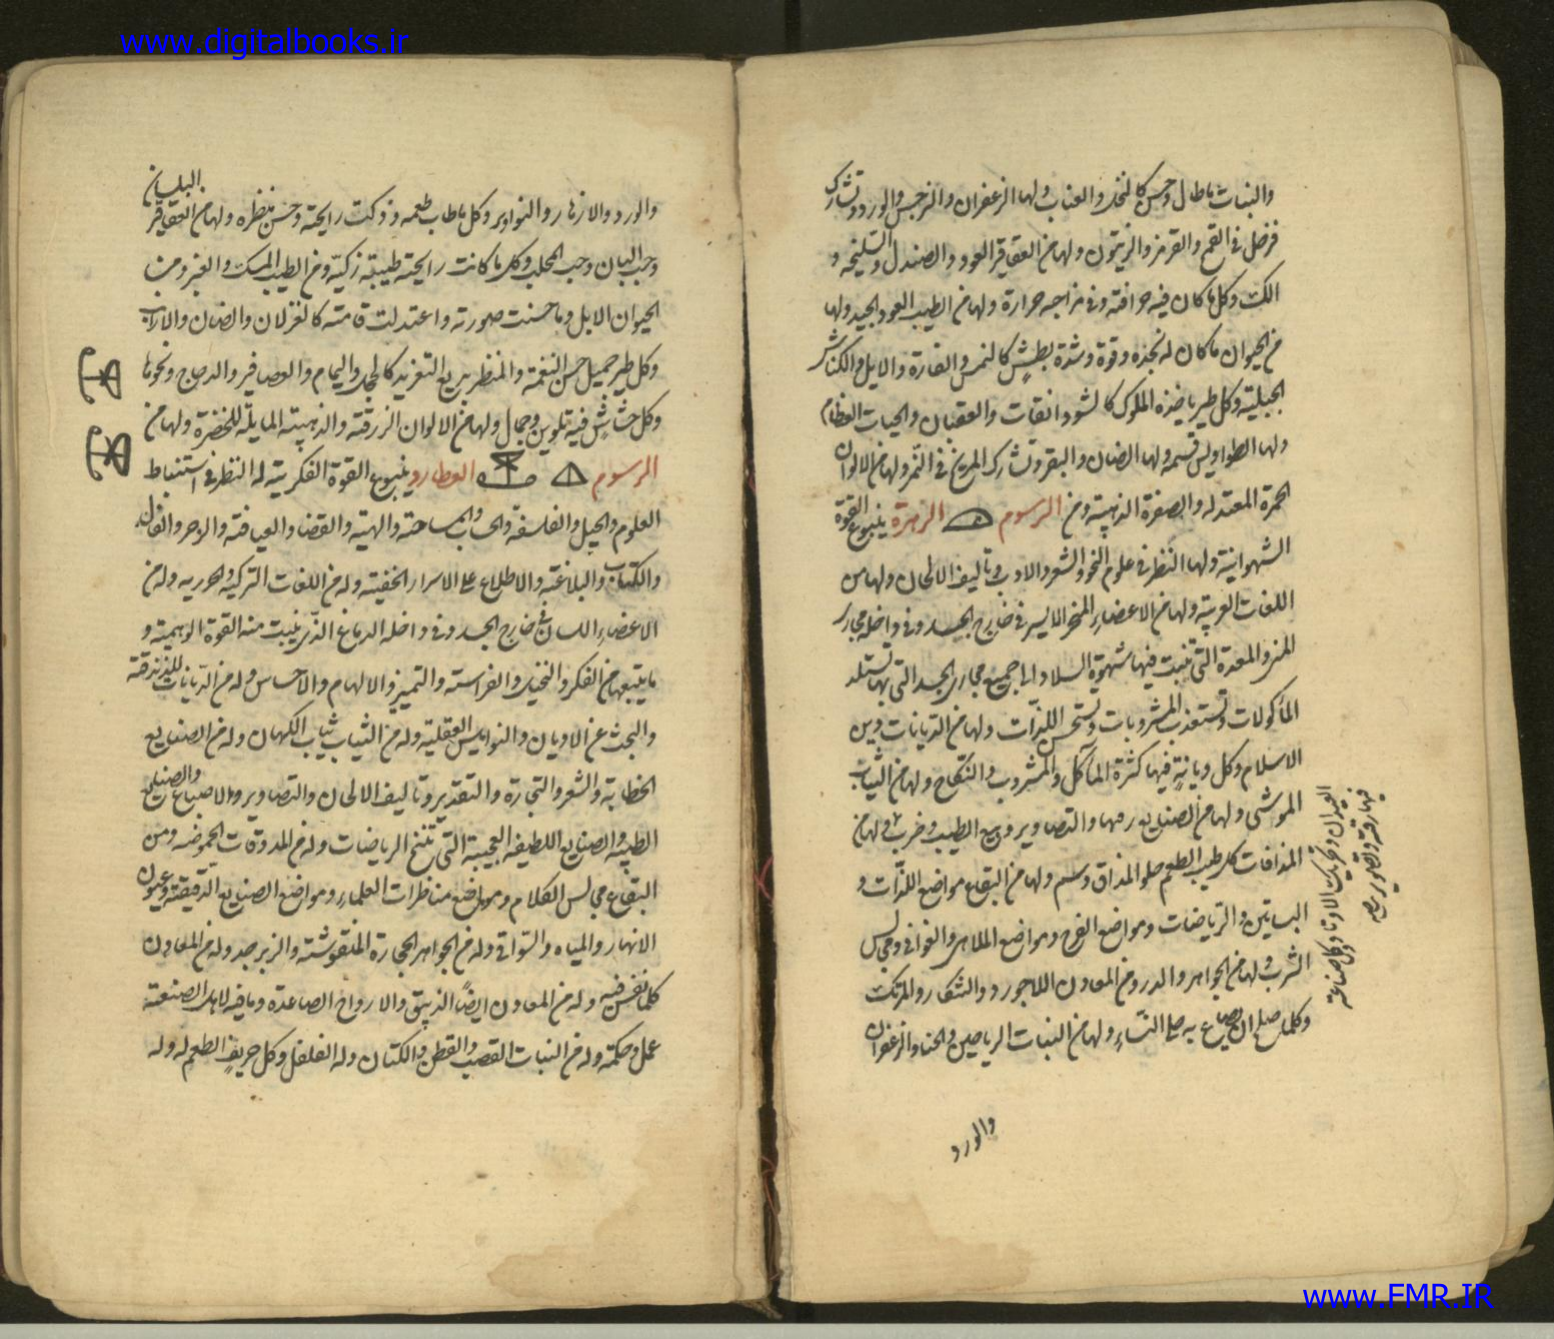 www.digitalbooks.ir
والنبات ما طال وحسن كالنخل والعناب ولها الزعفران والنرجس والورد وتشارك
زحل في القمح والقرمز والزيتون ولها من العقاقير العود والصندل والسليخه و
اللك وكل ما كان فيه حرافة وفي مزاجه حرارة ولها من الطيب العود الجيد ولها
من الحيوان ما كان له نجده وقوة وشدة بطش كالنمس والفارة والايل والكباش
الجبلية وكل طير ياخذه الملوك كالشودانقات والعقبان والحيات العظام
ولها الطواويس قسمه ولها الضان والبقر وتشارك المريخ في النمر ولها من الالوان
الحمرة المعتدله والصفرة الذهبية ومن الرسوم الزهرة ينبوع القوة
الشهوانية ولها النظر في علوم النحو والشعر والادب وتاليف الالحان ولها من
اللغات العربية ولها من الاعضاء المنخر الايسر في خارج الجسد وفي داخله مجاري
المني والمعدة التي تنبت فيها شهوة مجاري الجسد التي بها تستلذ
المأكولات وتستعذب المشروبات وتستحسن اللذات ولها من الديانات دين
الاسلام وكل ديانة فيها كثرة المآكل والمشروب والنكاح ولها من الثياب
الموشى ولها من الصنايع رقمها والتصاوير وبيع الطيب وضربه ولها من
المذاقات كل طيب الطعم حلو المذاق دسم ولها من البقاع مواضع اللذات و
البساتين والرياضات ومواضع الفرح ومواضع الملاهي والغواني ومجالس
الشرب ولها من الجواهر والدر ومن المعادن اللاجورد والشكار والمرتك
وكلما يصلح ان يصاغ به حلي النساء ولها من النبات الرياحين والحنا والزعفران
العيدان وتحريك الاوتار وكل صناعة
فيها رقة وتصوير
والورد
والورد والازهار والنواوير وكل ما طاب طعمه وزكت رايحته وحسن منظره ولها من العقاقير البلسان
وحب البان وحب المحلب وكل ما كانت رايحته طيبة زكيّه ومن الطيب المسك والعنبر ومن
الحيوان الابل وما حسنت صورته واعتدلت قامته كالغزلان والضان والارانب
وكل طير جميل حسن النغمة والمنظر بديع التغريد كالحجل واليمام والعصافير والدجاج ونحوها
وكل حشاش فيه تلوين وجمال ولها من الالوان الزرقة والذهبية المايلة للخضرة ولها من
الرسوم العطارد ينبوع القوة الفكرية له النظر في استنباط
العلوم والحيل والفلسفة والحساب والمساحة والهيئة والقضا والعيافة والزجر والفال
والكتاب والبلاغة والاطلاع على الاسرار الخفية وله من اللغات التركية والخزريه وله من
الاعضاء اللسان في خارج الجسد وفي داخله الدماغ الذي ينبت منه القوة الوهمية و
ما يتبعها من الفكر والتخيل والفراسة والتمييز والالهام والاحساس وله من الديانات الزندقة
والبحث عن الاديان والنواميس العقلية وله من الثياب ثياب الكهان وله من الصنايع
الخطابة والشعر والتجارة والتقدير وتاليف الالحان والتصاوير والاصباغ والصنايع
الطبية والصنايع اللطيفة العجيبة التي تنتج الرياضات وله من المذوقات الحموضه ومن
البقاع مجالس الكلام ومواضع مناظرات العلماء ومواضع الصنايع الدقيقة وعيون
الانهار والمياه والسواقي وله من الجواهر الحجارة المنقوشة والزبرجد وله من المعادن
كلما نفس فيه وله من المعادن ايضًا الزيبق والارواح الصاعده وما فيه لاهل الصنعة
عمل وحكمة وله من النبات القصب والقطن والكتان وله الفلفل وكل حريف الطعم له وله
www.FMR.IR